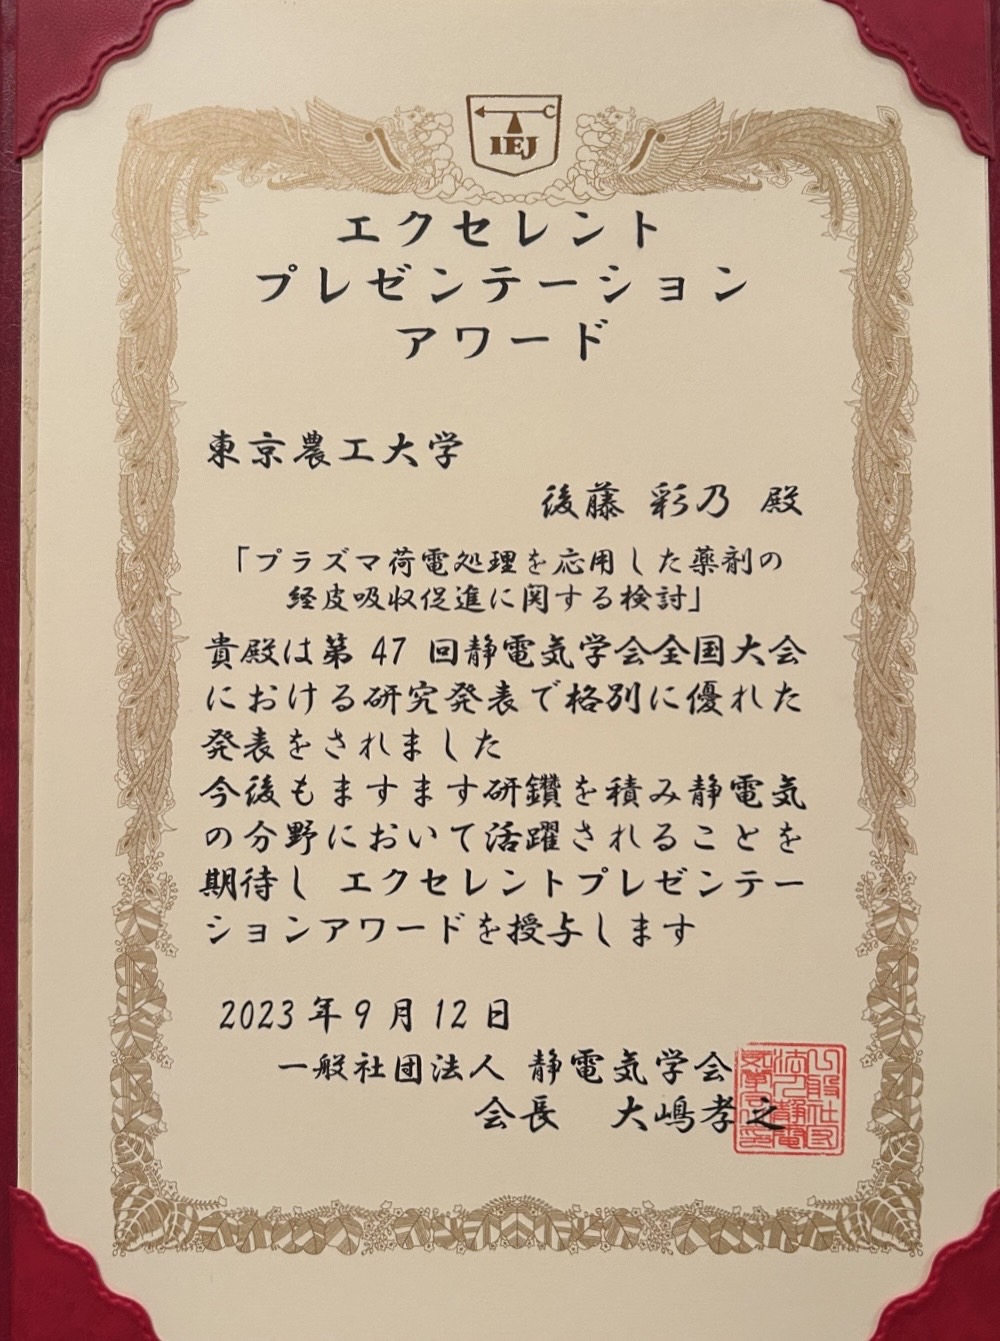 C
IEJ
エクセレント
プレゼンテーション
アワード
東京農工大学
後藤 彩乃 殿
「プラズマ荷電処理を応用した薬剤の
経皮吸収促進に関する検討」
貴殿は第 47 回静電気学会全国大会
における研究発表で格別に優れた
発表をされました
今後もますます研鑽を積み静電気
の分野において活躍されることを
期待し エクセレントプレゼンテー
ションアワードを授与します
2023 年 9 月 12 日
一般社団法人 静電気学会
会長 大嶋孝之